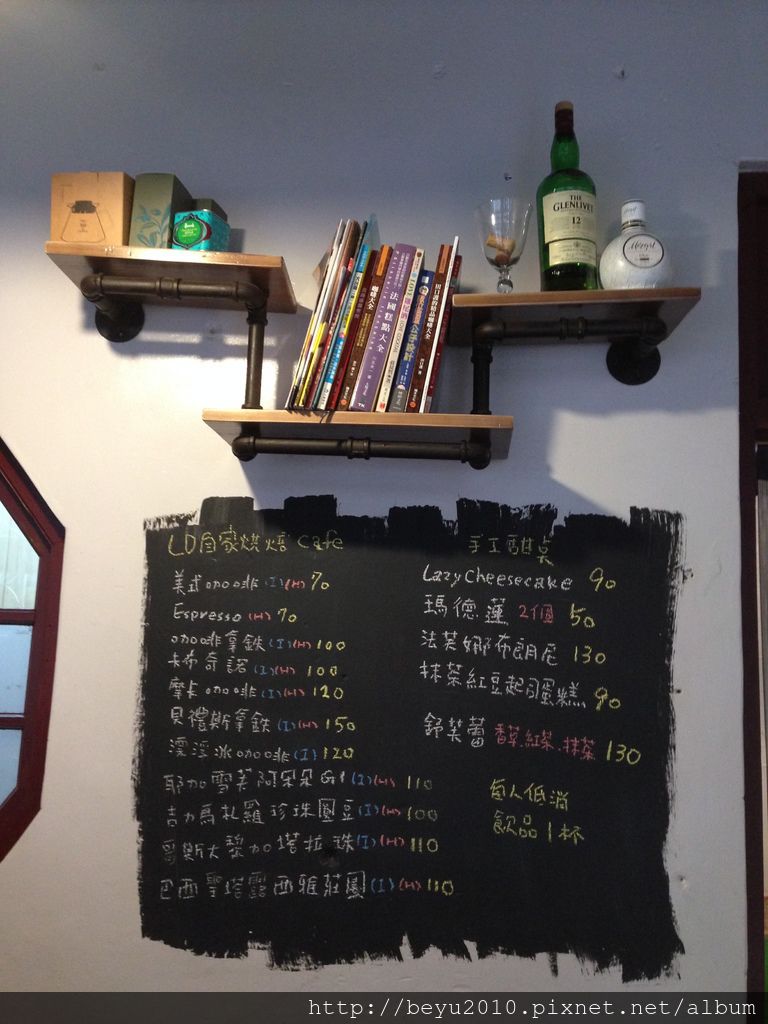 THE
GLENLIVET
12
Mozart
咖啡大全
法國糕點大全
公子設計
田口護的精品咖啡大全
LD自家烘焙 Cafe
美式咖啡(I)(H) 70
Espresso (H) 70
咖啡拿鐵(I)(H) 100
卡布奇諾(I)(H) 100
摩卡咖啡(I)(H) 120
貝禮斯拿鐵(I)(H) 150
漂浮冰咖啡(I) 120
耶加雪菲阿朵朵G1(I)(H) 110
吉力馬札羅珍珠圓豆(I)(H) 100
哥斯大黎加塔拉珠(I)(H) 110
巴西聖塔露西雅莊園(I)(H) 110
手工甜點
Lazy Cheesecake 90
瑪德蓮 2個 50
法芙娜布朗尼 130
抹茶紅豆起司蛋糕 90
舒芙蕾 香草.紅茶.抹茶 130
每人低消
飲品1杯
http://beyu2010.pixnet.net/album